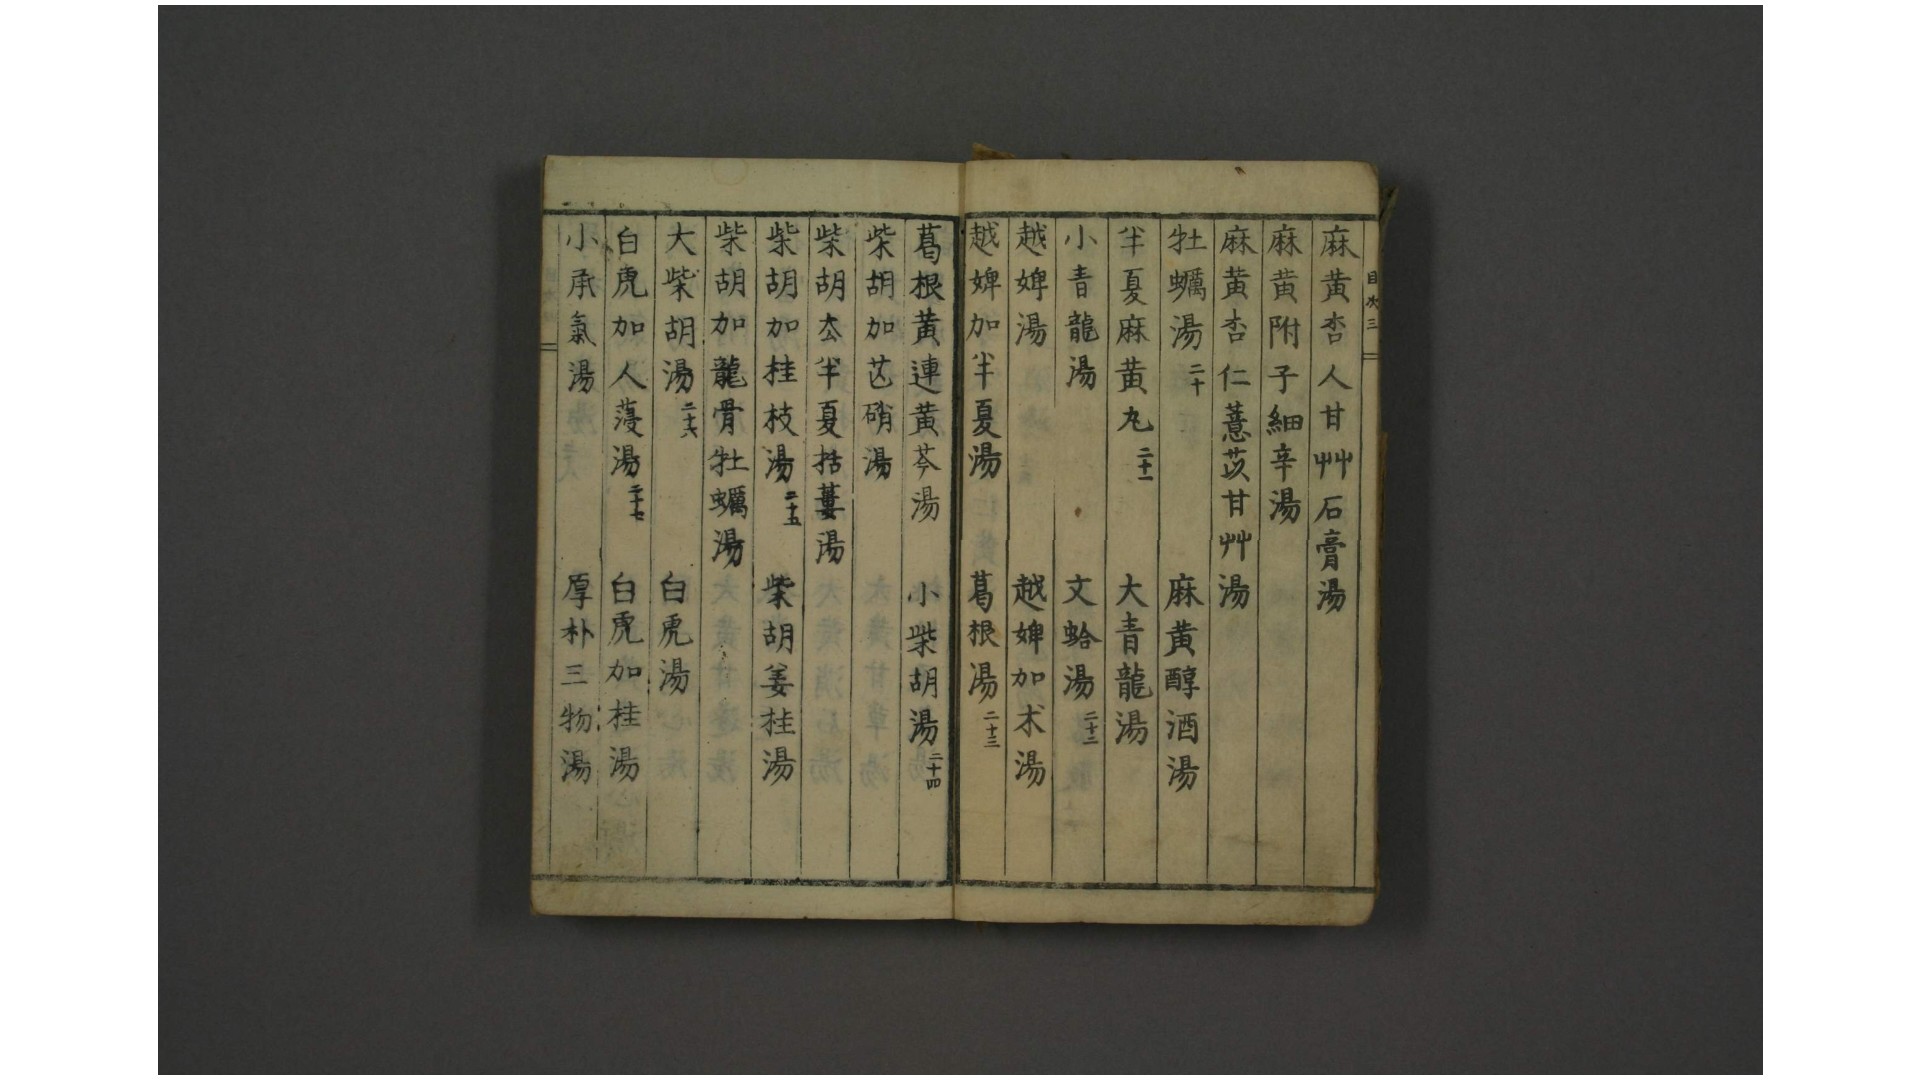 目次 三
麻黄杏人甘艸石膏湯
麻黄附子細辛湯
麻黄杏仁薏苡甘艸湯
牡蠣湯 二十 麻黄醇酒湯
半夏麻黄丸 二十一 大青龍湯
小青龍湯 文蛤湯 二十二
越婢湯 越婢加朮湯
越婢加半夏湯 葛根湯 二十三
葛根黄連黄芩湯 小柴胡湯 二十四
柴胡加芒硝湯
柴胡去半夏括蔞湯
柴胡加桂枝湯 二十五 柴胡姜桂湯
柴胡加龍骨牡蠣湯
大柴胡湯 二十六 白虎湯
白虎加人薓湯 二十七 白虎加桂湯
小承氣湯 厚朴三物湯